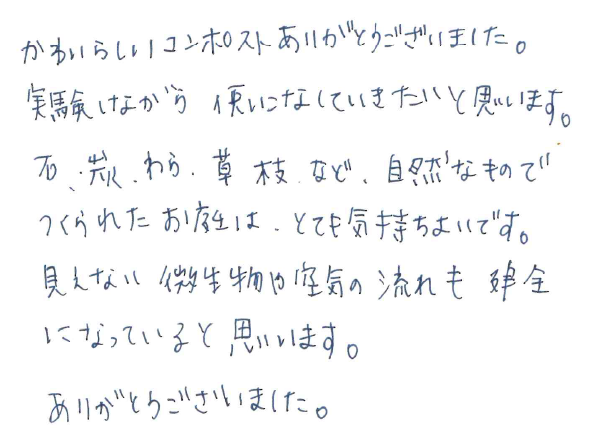 かわいらしいコンポストありがとうございました。
実験しながら 使いこなしていきたいと思います。
石、炭、わら、草 枝 など、自然なもので
つくられたお庭は、とても気持ちよいです。
見えない 微生物や空気の流れも 健全
になっていると思います。
ありがとうございました。